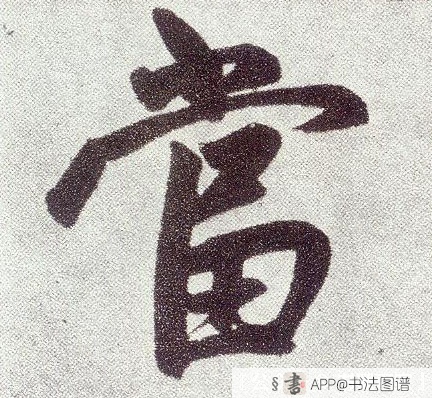 當
§書 APP@书法图谱